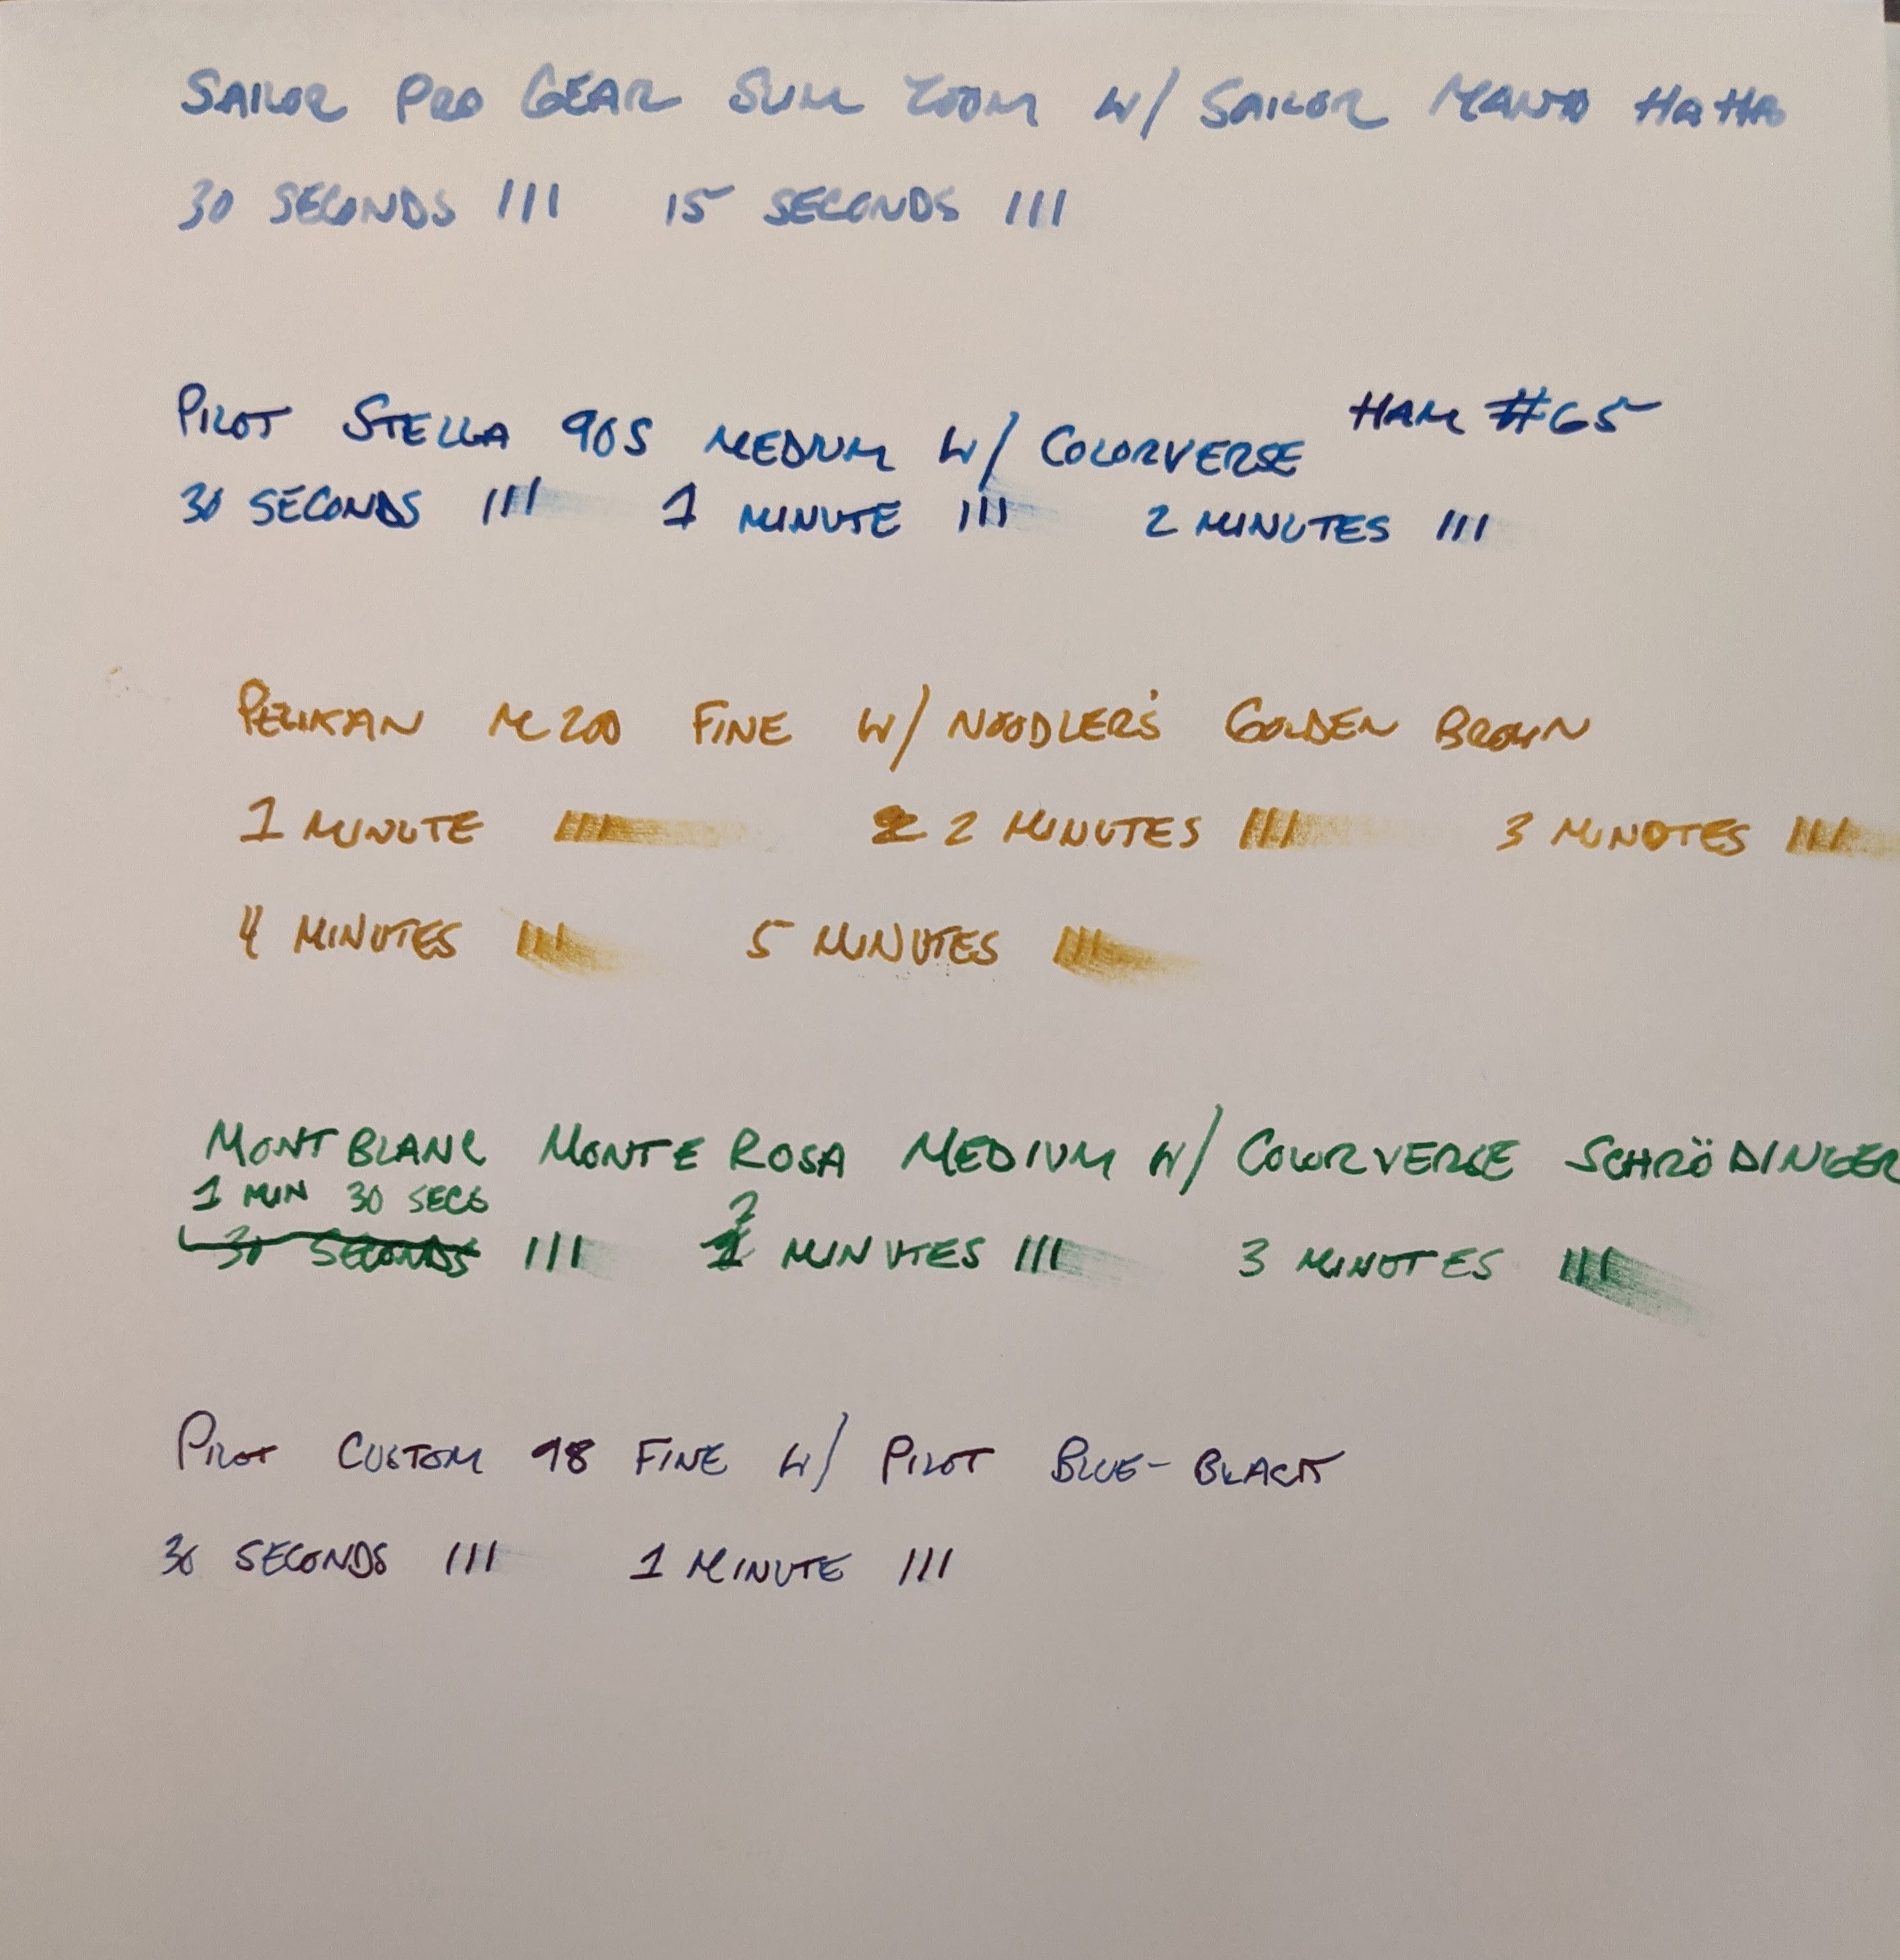 SAILOR PRO GEAR SLIM ZOOM W/ SAILOR MANYO HAHA
30 SECONDS III 15 SECONDS III
PILOT STELLA 90S MEDIUM W/ COLORVERSE HAM #65
30 SECONDS III 1 MINUTE III 2 MINUTES III
PELIKAN M200 FINE W/ NOODLER'S GOLDEN BROWN
1 MINUTE III 2 2 MINUTES III 3 MINUTES III
4 MINUTES III 5 MINUTES III
MONTBLANC MONTE ROSA MEDIUM W/ COLORVERSE SCHRÖDINGER
1 MIN 30 SECS
30 SECONDS III 2 MINUTES III 3 MINUTES III
PILOT CUSTOM 98 FINE W/ PILOT BLUE-BLACK
30 SECONDS III 1 MINUTE III